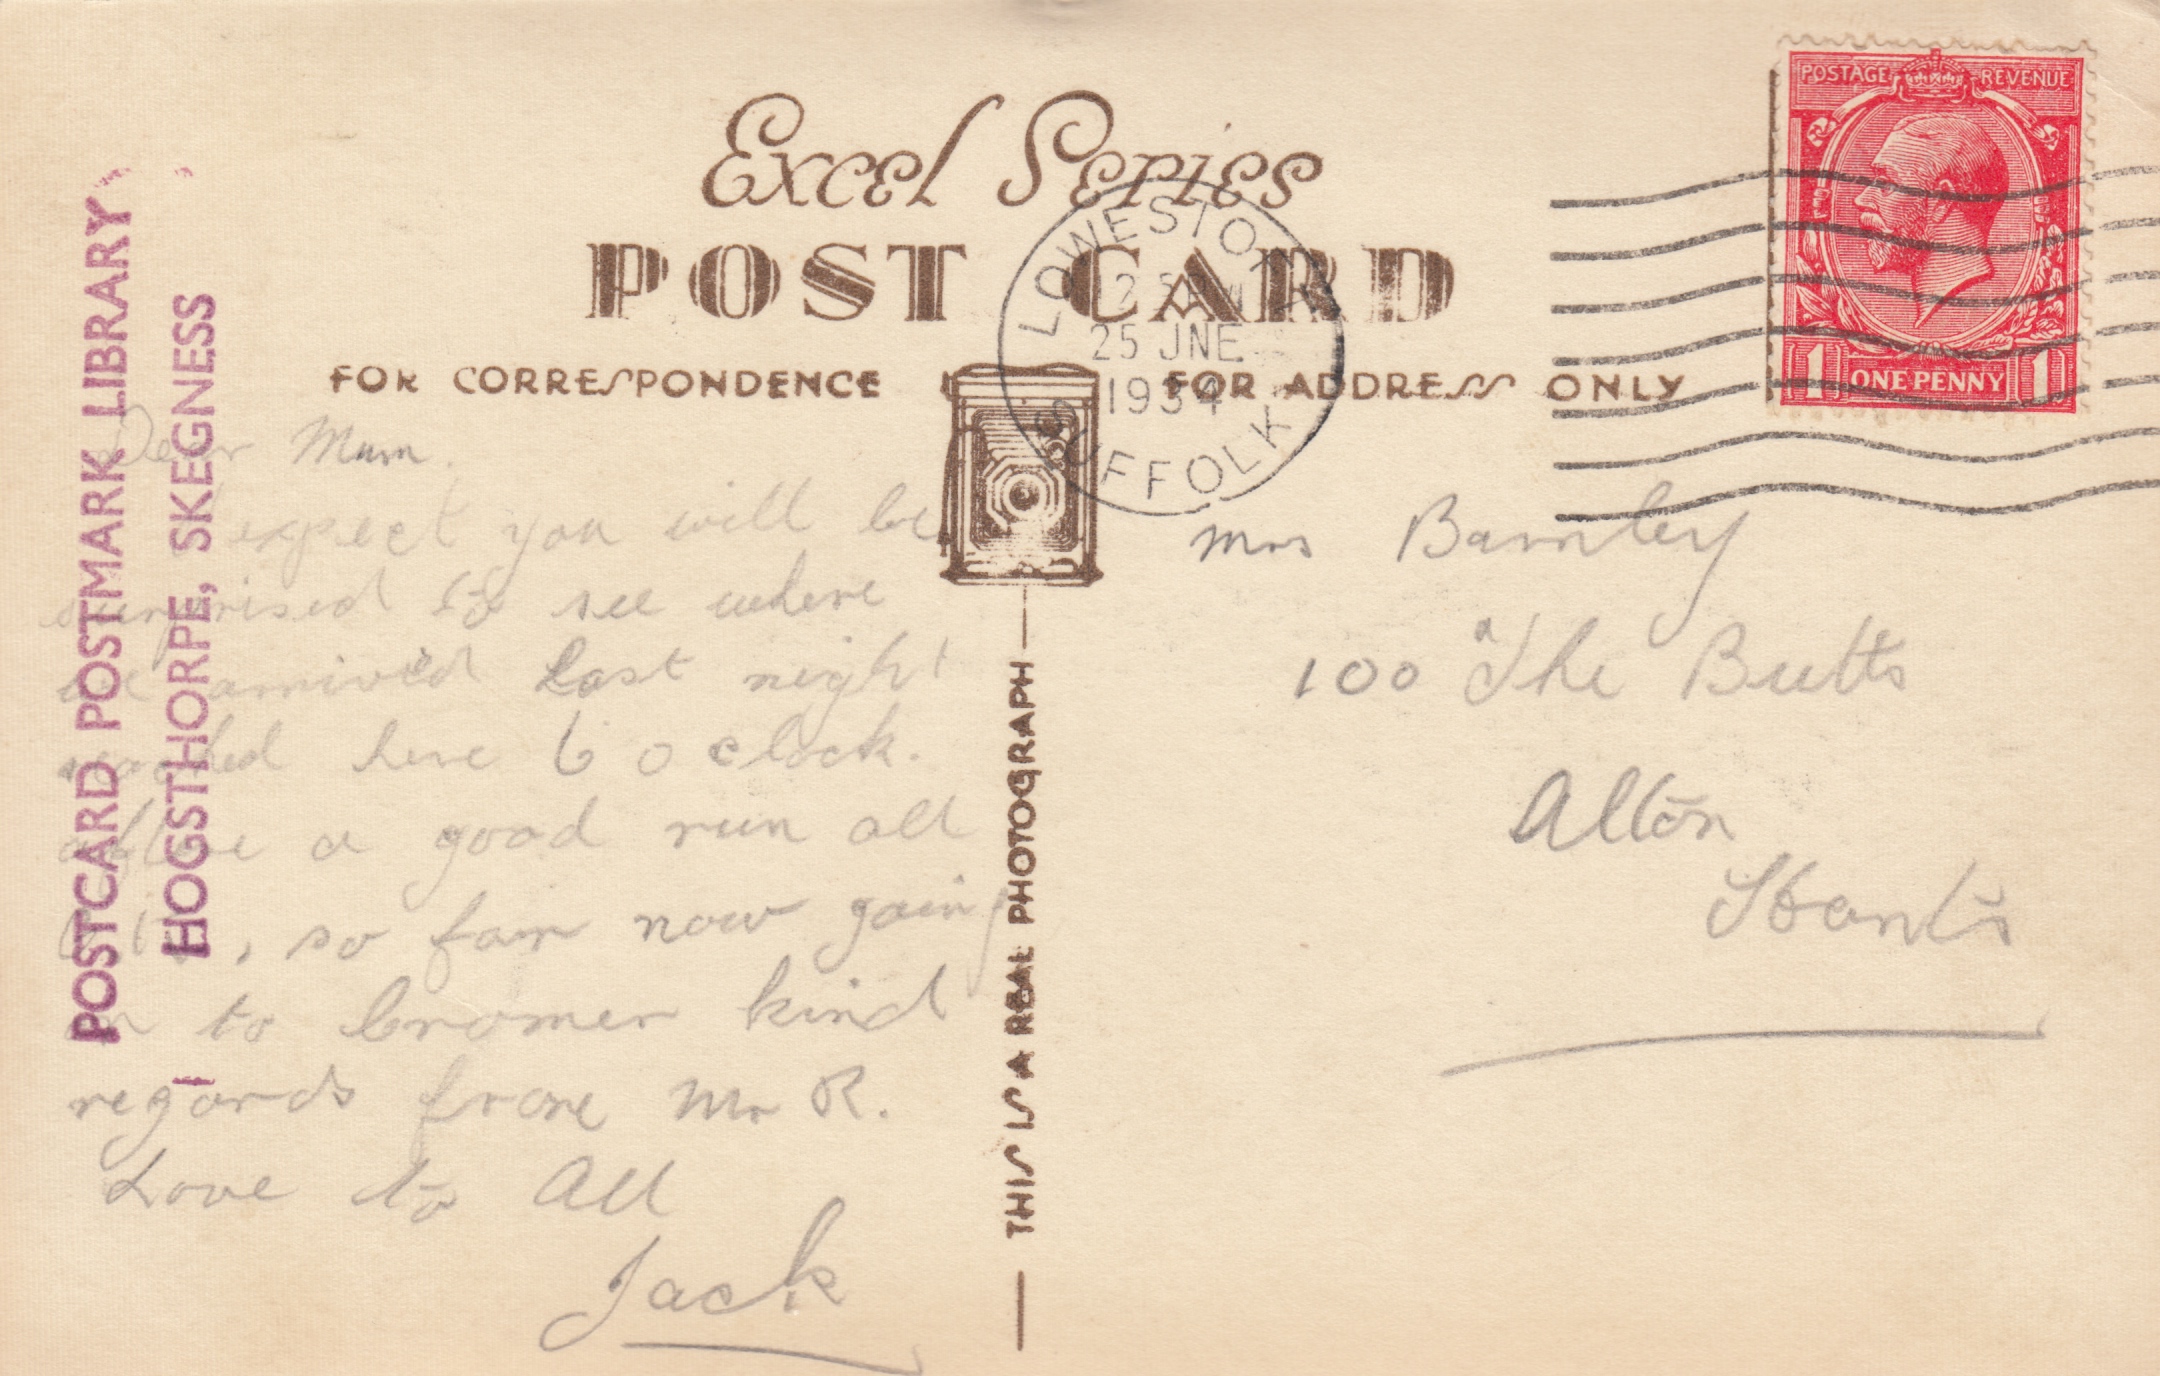 Excel Series
POST CARD
FOR CORRESPONDENCE
FOR ADDRESS ONLY
POSTAGE REVENUE
1 ONE PENNY 1
LOWESTOFT
25 JNE
1934
SUFFOLK
POSTCARD POSTMARK LIBRARY
HOGSTHORPE, SKEGNESS
THIS IS A REAL PHOTOGRAPH
Dear Mum.
I expect you will be
surprised to see where
we arrived last night
reached here 6 o clock.
a good run all
so far now going
on to Cromer kind
regards from Mr R.
Love to All
Jack
Mrs
100 The Butts
Alton
Hants